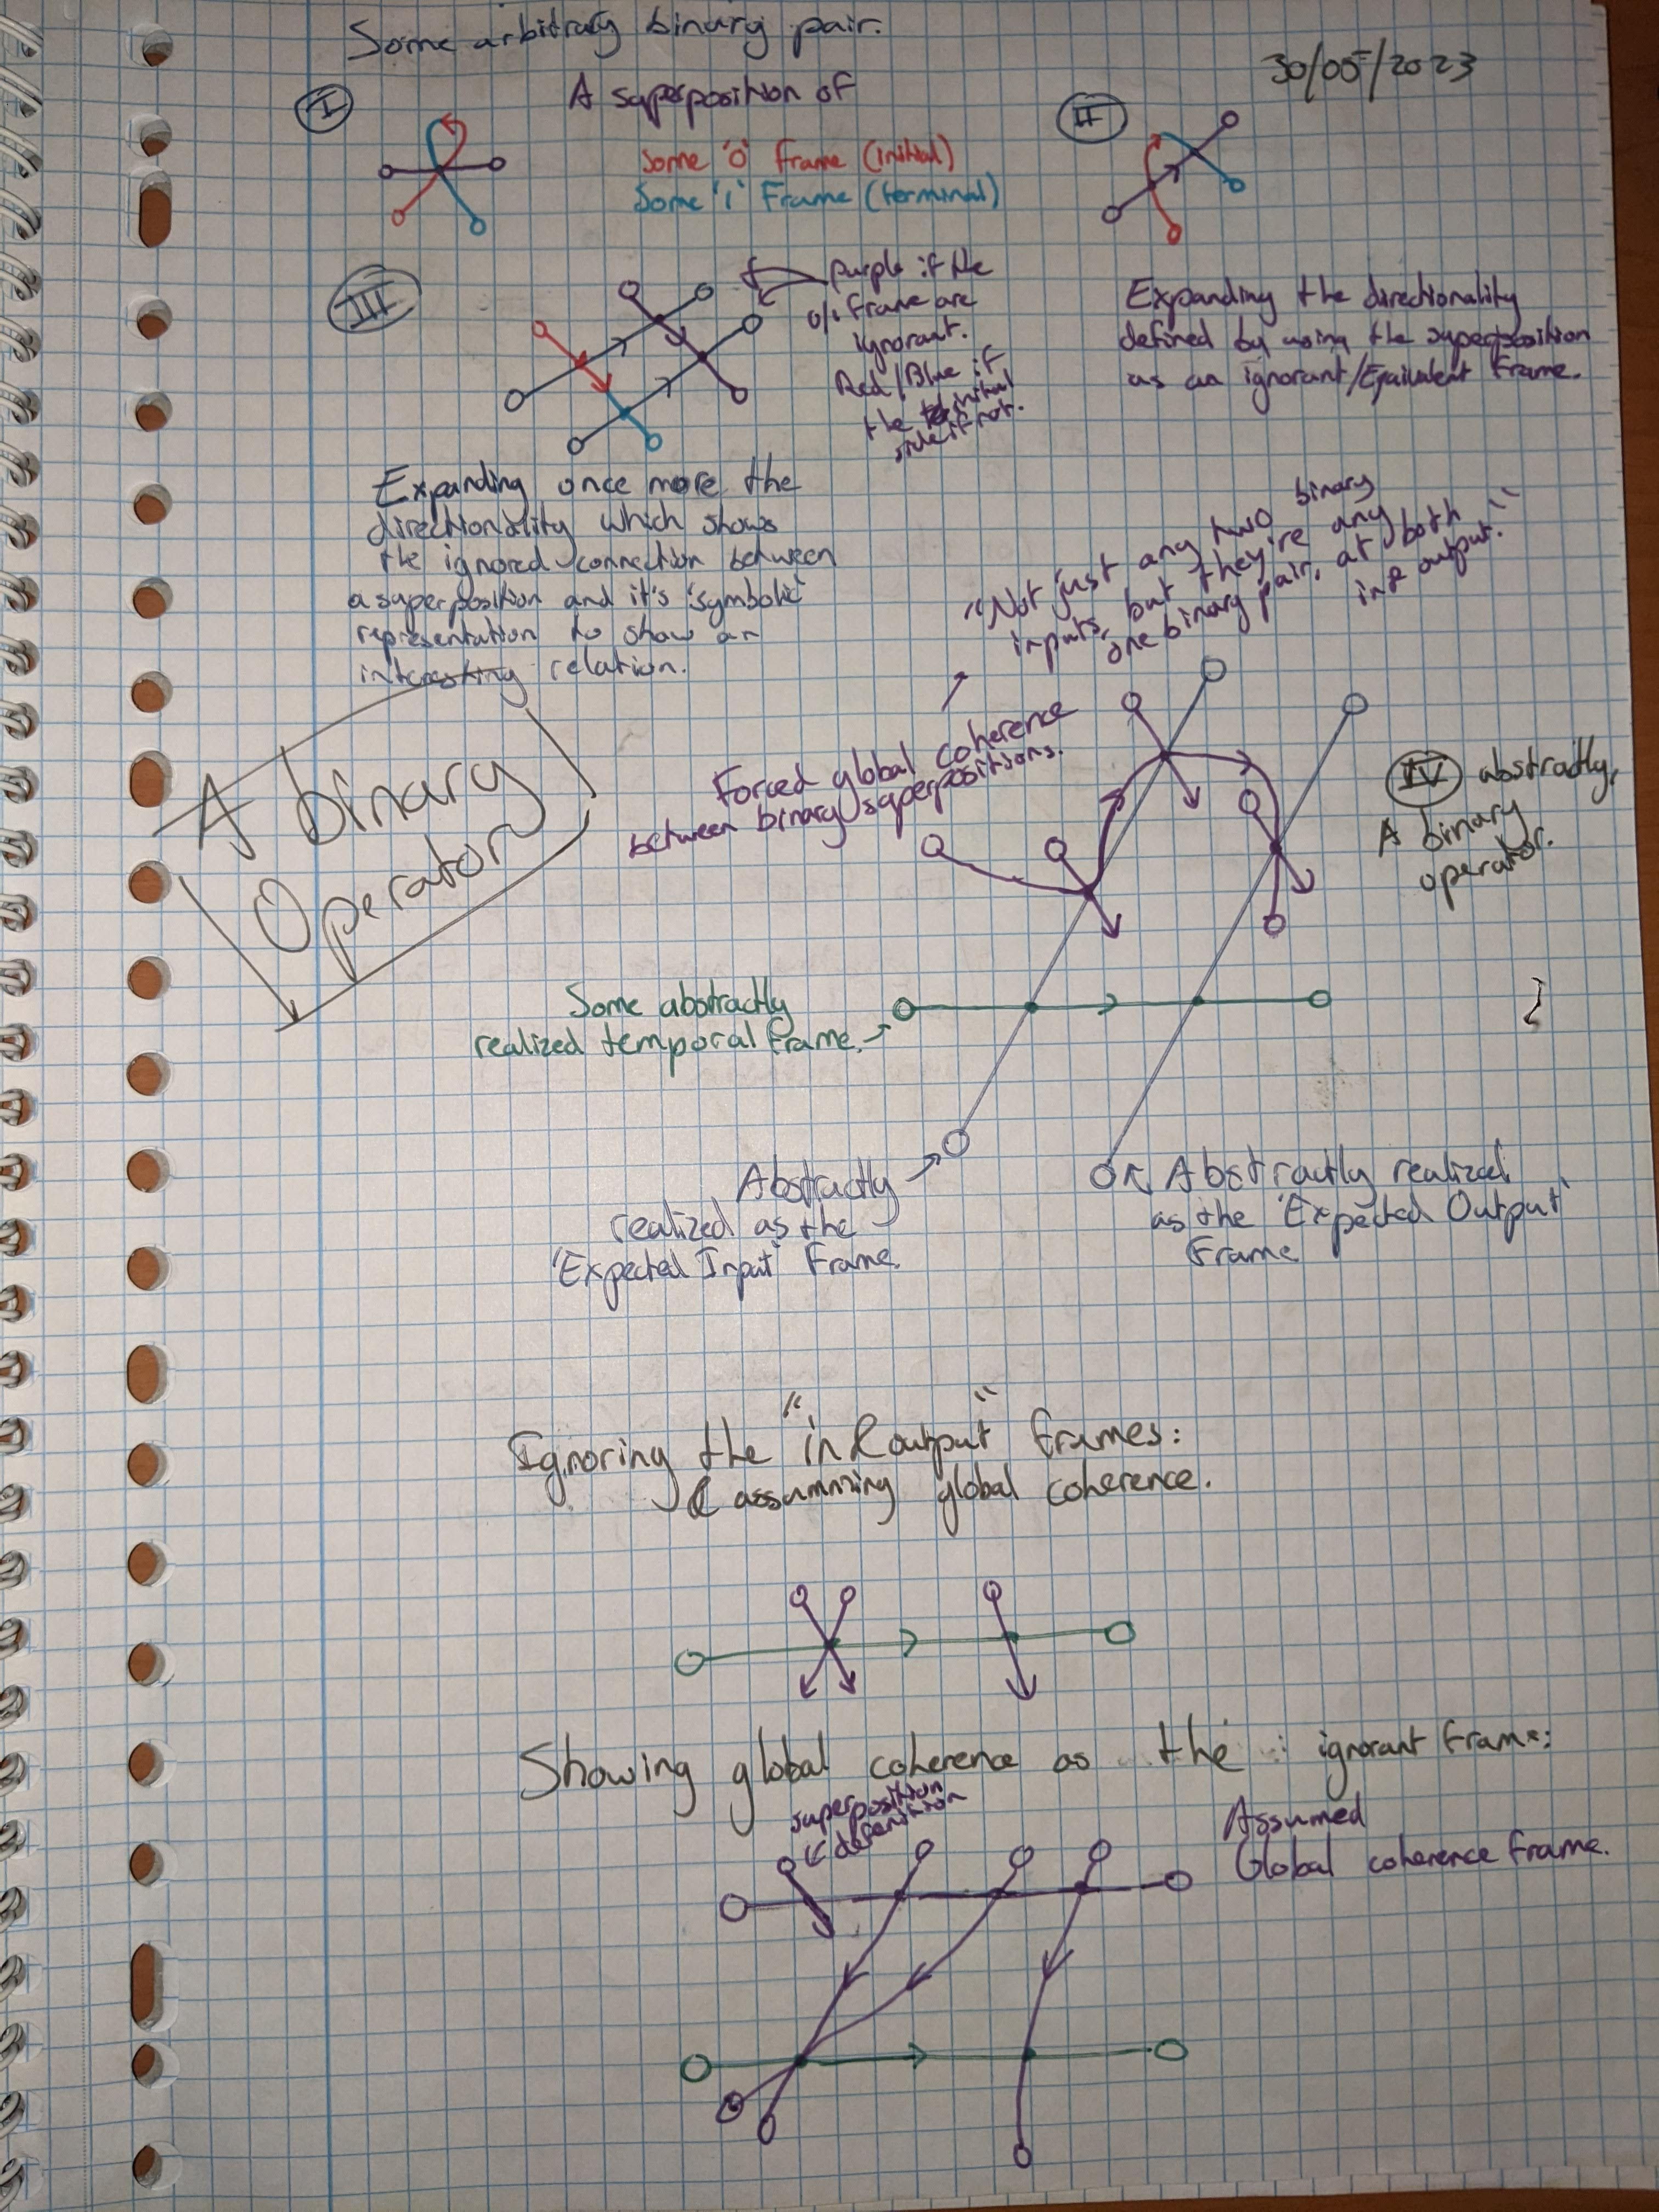 Some arbitrary binary pair.
30/05/2023
I
A superposition of
Some '0' frame (initial)
Some '1' Frame (terminal)
II
III
purple if the
0/1 frame are
ignorant.
Red/Blue if
the initial
side if not.
Expanding the directionality
defined by using the superposition
as an ignorant/Equivalent frame.
Expanding once more the
directionality which shows
the ignored connection between
a superposition and it's 'symbolic'
representation to show an
interesting relation.
"Not just any two binary
inputs, but they're any
one binary pair, at both
in & output."
Forced global coherence
between binary superpositions.
A binary
Operator
IV abstractly,
A binary
operator.
Some abstractly
realized temporal frame.
Abstractly
realized as the
'Expected Input' Frame.
Abstractly realized
as the 'Expected Output'
Frame
Ignoring the "in & output" frames:
& assumming global coherence.
Showing global coherence as the ignorant frame:
superposition
definition
Assumed
Global coherence frame.